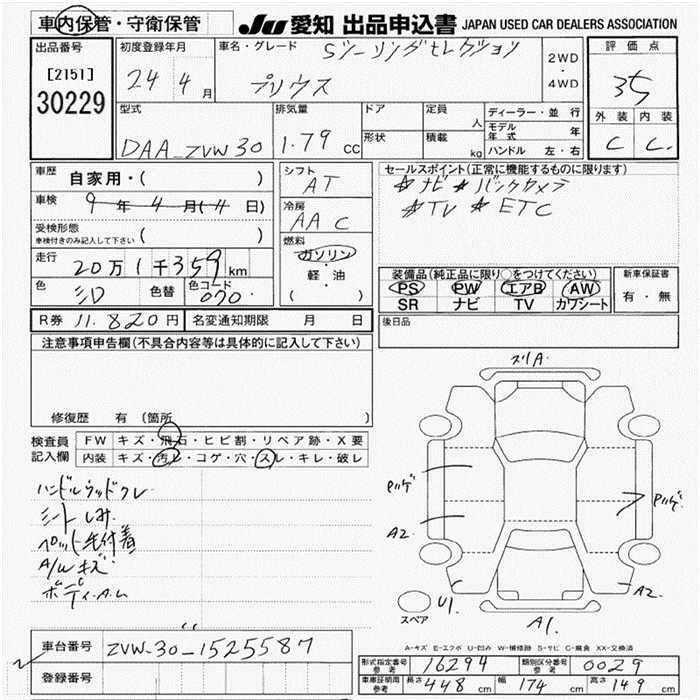 車内保管・守衛保管
JU 愛知 出品申込書 JAPAN USED CAR DEALERS ASSOCIATION
出品番号
[2151]
30229
初度登録年月
24 4月
車名・グレード
Sツーリングセレクション
プリウス
2WD
・
4WD
評価点
3.5
外装 内装
C C
型式
DAA_ZVW30
排気量
1.79 cc
ドア
形状
定員 人
積載 kg
ディーラー・並行
モデル年式 年
ハンドル 左・右
車歴 自家用・( )
車検 9年4月(4日)
受検形態
車検付きのみ記入して下さい ( )
走行 20万1千359km
色 シロ 色替 色コード 070
シフト
AT
冷房
AAC
燃料
ガソリン・
軽・油
( )
セールスポイント(正常に機能するものに限ります)
#ナビ #バックカメラ
#TV #ETC
装備品(純正品に限り○をつけてください)
PS PW エアB AW
SR ナビ TV カワシート
新車保証書
有・無
R券 11.820円 名変通知期限 月 日
後日品
注意事項申告欄(不具合内容等は具体的に記入して下さい)
修復歴 有 (箇所
検査員
記入欄
FW キズ・飛石・ヒビ割・リペア跡・X要
内装 キズ・汚レ・コゲ・穴・スレ・キレ・破レ
ハンドルウッドクレ
シートしみ
ペット毛付着
A/Wキズ
ボディA.ム
スリA
A2
U1
A1
A2
スペア
A-キズ E-エクボ U-凹み W-補修跡 S-サビ C-腐食 XX-交換済
車台番号 ZVW-30-1525587
登録番号
形式指定番号 参考 16294 類別区分番号 参考 0029
車庫証明用 参考 長さ 448 cm 幅 174 cm 高さ 149 cm